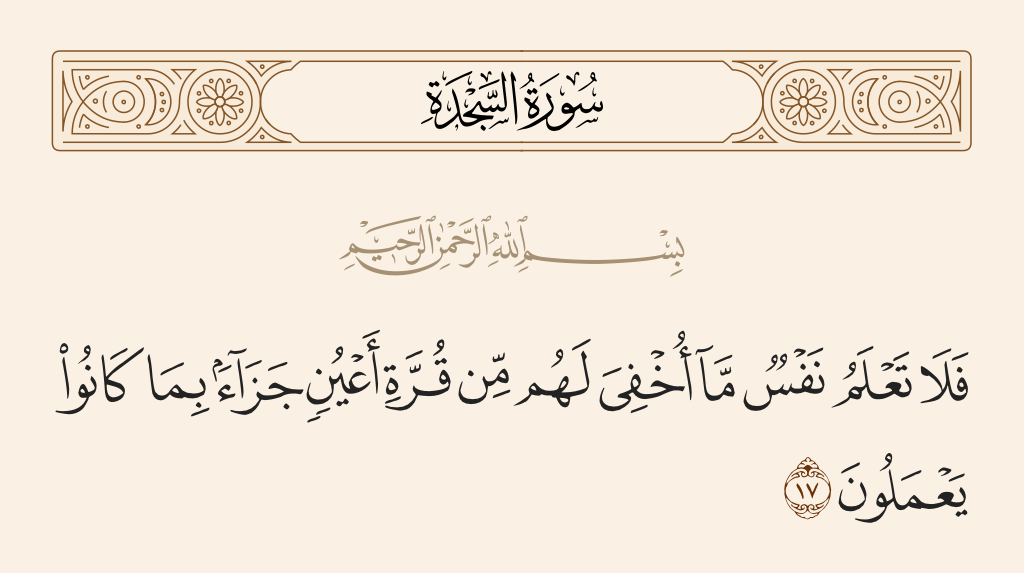 سُورَةُ السَّجْدَةِ
بِسْمِ ٱللَّهِ ٱلرَّحْمَٰنِ ٱلرَّحِيمِ
فَلَا تَعْلَمُ نَفْسٌ مَّآ أُخْفِىَ لَهُم مِّن قُرَّةِ أَعْيُنٍ جَزَآءًۢ بِمَا كَانُوا۟
يَعْمَلُونَ ١٧